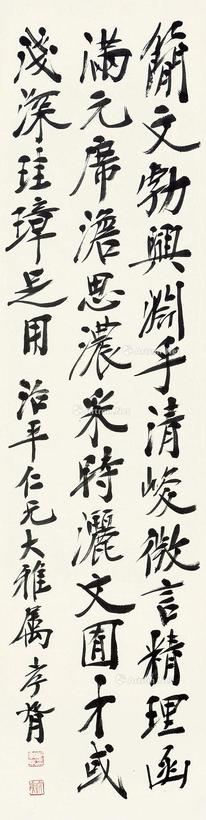 簡文勃興淵乎清峻微言精理函
滿元席澹思濃采時灑文囿才或
淺深珪璋足用 治平仁兄大雅属 孝胥